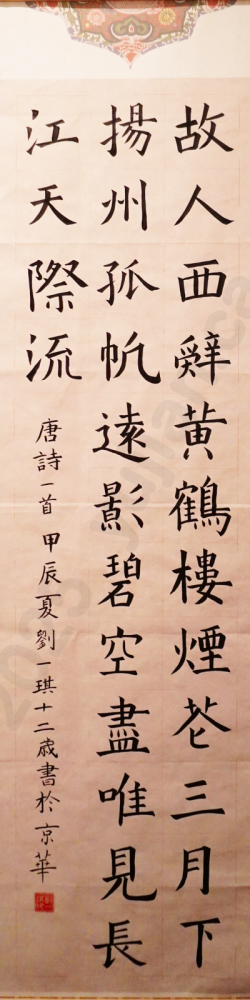 故人西辤黄鶴樓煙花三月下
揚州孤帆遠影碧空盡唯見長
江天際流
唐詩一首 甲辰夏劉一琪十二歲書於京華